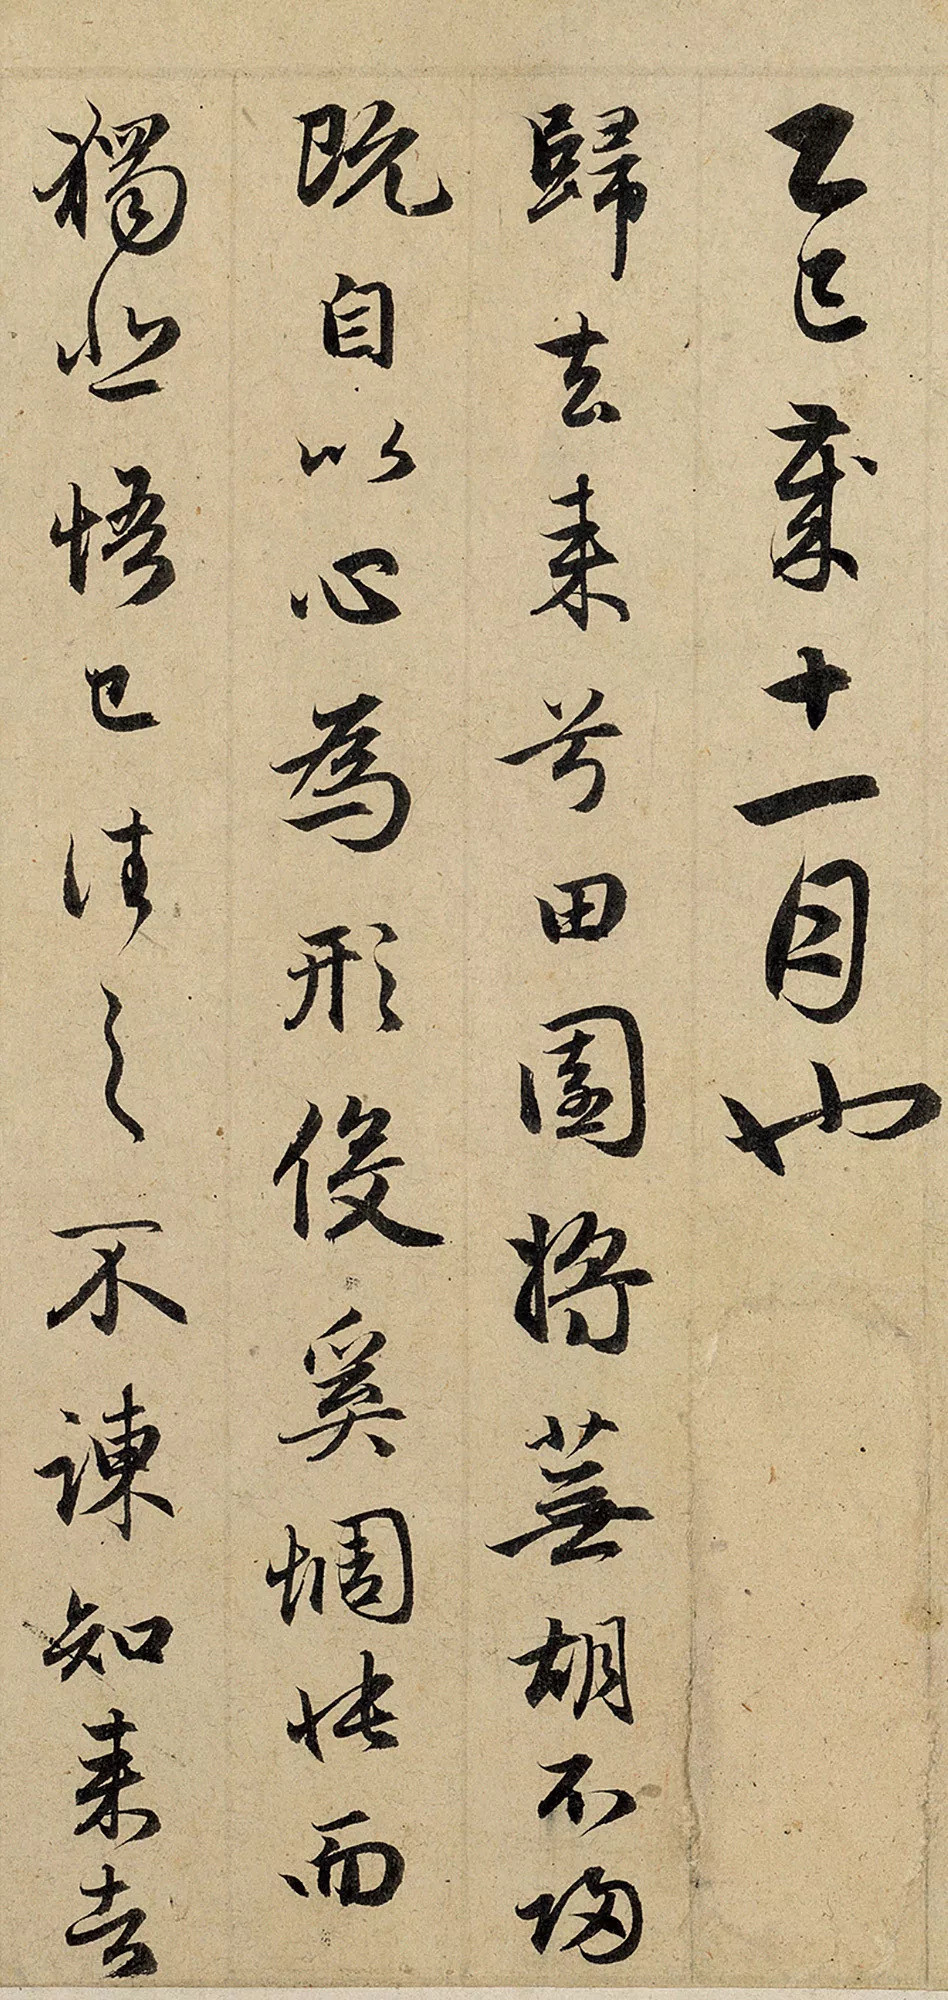 乙巳歲十一月也
歸去來兮田園將蕪胡不歸
既自以心為形役奚惆悵而
獨悲悟已往之不諫知來者